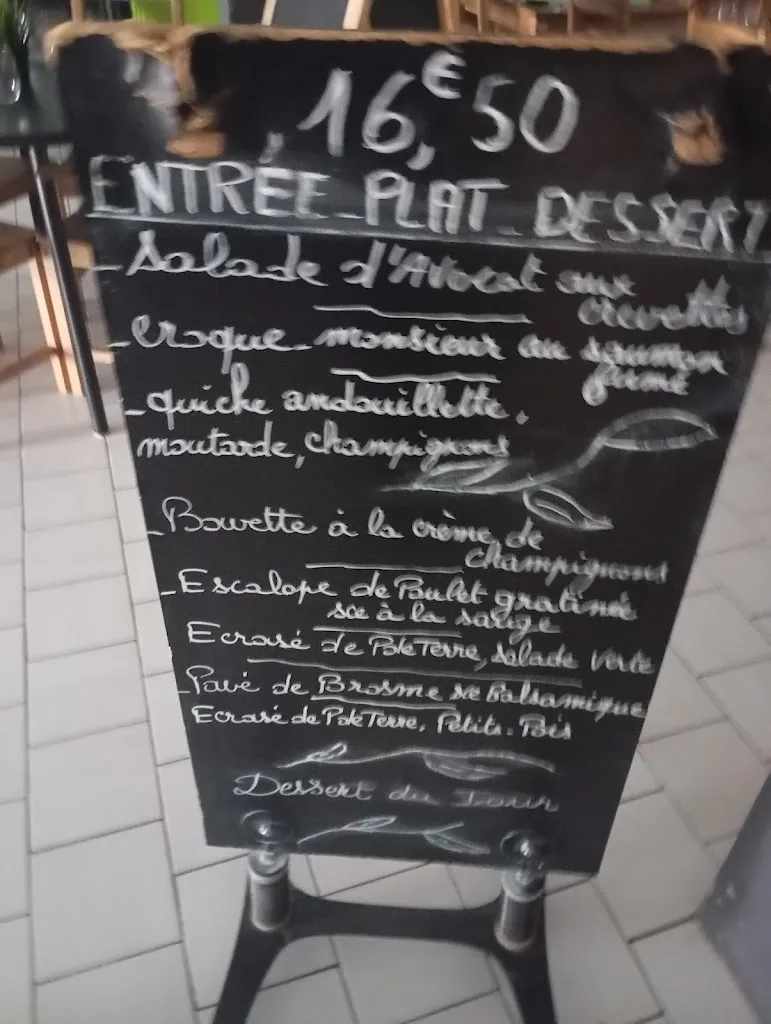 16,€50
ENTRÉE_PLAT_DESSERT
- Salade d'Avocat aux
crevettes
- Croque-monsieur au saumon
fumé
- quiche andouillette,
moutarde, champignons
- Bavette à la crème de
champignons
- Escalope de Poulet gratinée
sce à la sauge
Ecrasé de P de Terre, salade verte
- Pavé de Brosme sce Balsamique
Ecrasé de P de Terre, Petits-Pois
Dessert du Jour